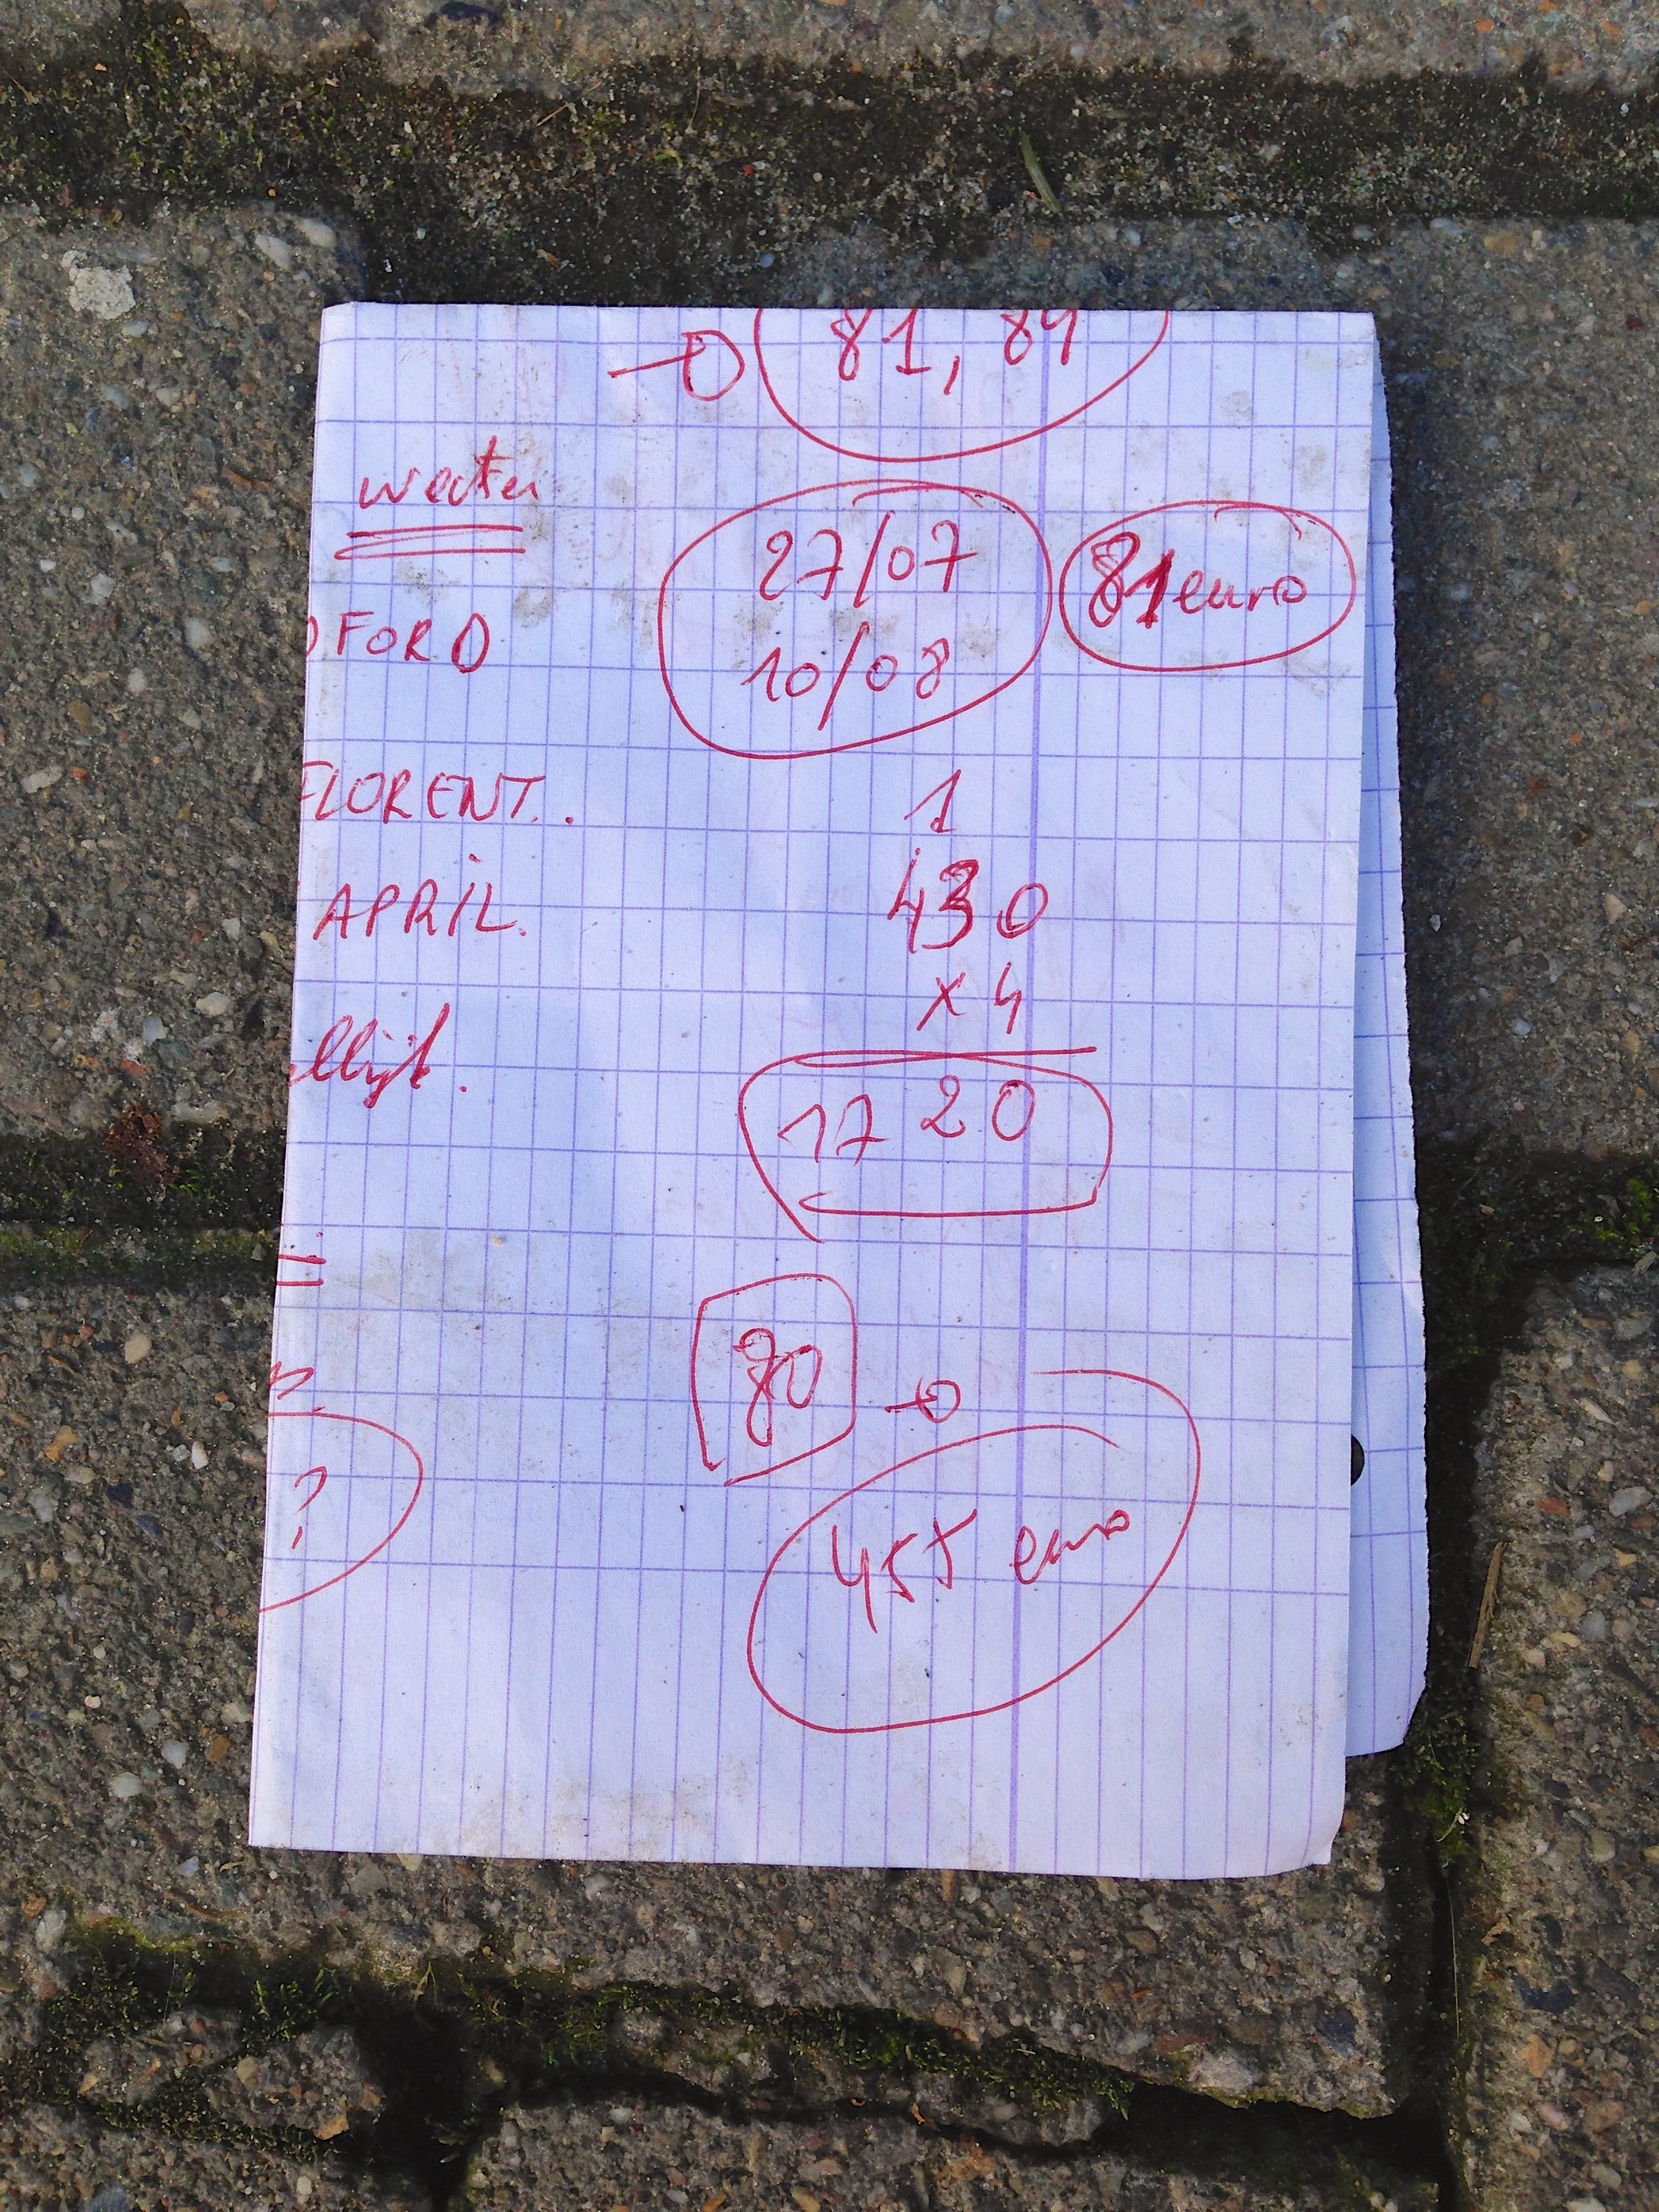 81, 89
27/07
81 euro
FORD
10/08
FLORENT..
1
APRIL.
430
x 4
1720
80
?
455 euro